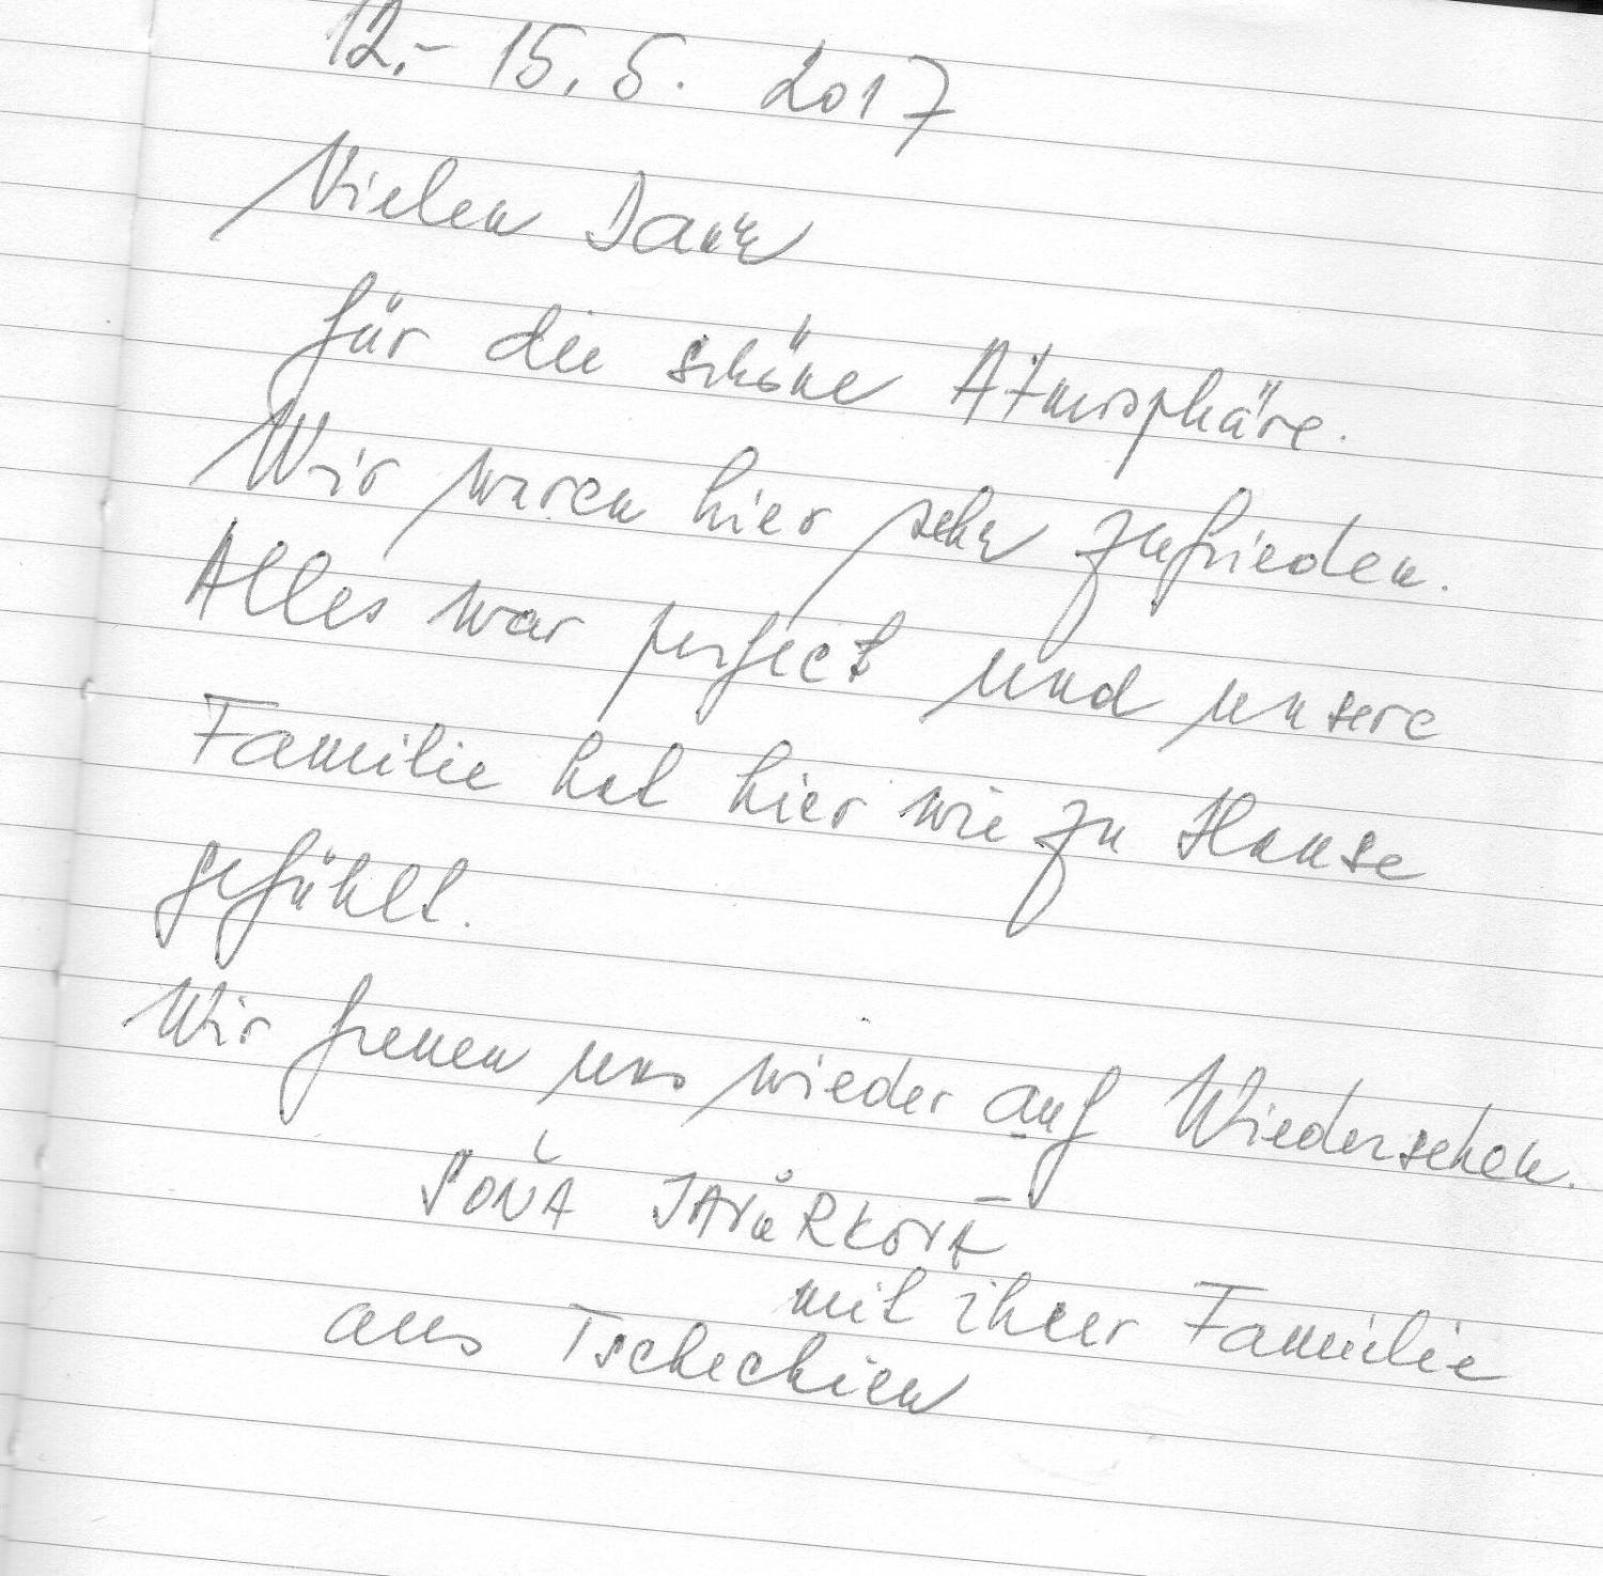 12.- 15. 5. 2017
Vielen Dank
für die schöne Atmosphäre.
Wir waren hier sehr zufrieden.
Alles war perfect und unsere
Familie hat hier wie zu Hause
gefühlt.
Wir freuen uns wieder auf Wiedersehen.
SOŇA JAVŮRKOVÁ
mit ihrer Familie
aus Tschechien